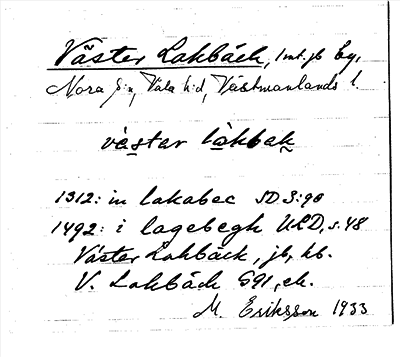 Väster Lakbäck, 1 mt. jb by,
Nora s:n, Våla h:d, Västmanlands l.
väster làkbak
1312: in lakabec SD 3:90
1492: i lagebegh ULD, s. 48
Väster Lakbäck, jb, kb.
V. Lakbäck G91, ek.
M. Eriksson 1933